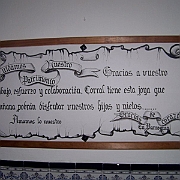 Cuidamos Nuestro
Patrimonio
Gracias a vuestro
trabajo, esfuerzo y colaboración. Corral tiene esta joya que
mañana podrán disfrutar vuestros hijos y nietos ......
¡Amamos lo nuestro
Gracias de Corazón